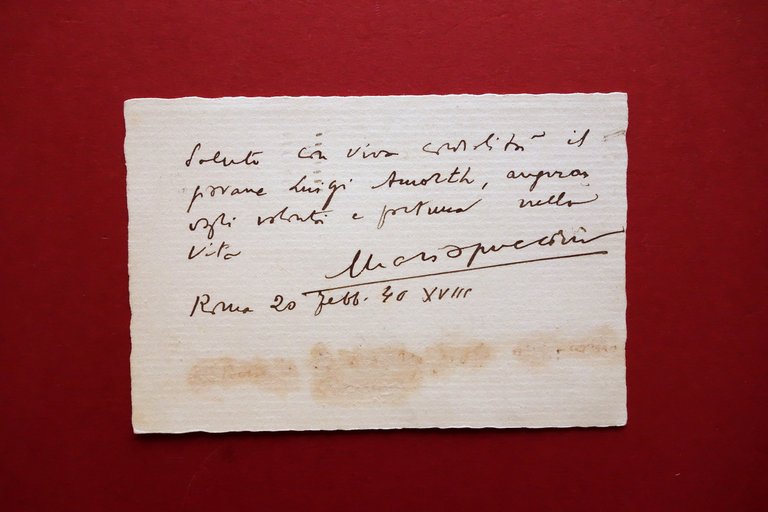 Saluto con viva cordialità il
giovane Luigi Amorth, auguran
dogli volontà e fortuna nella
vita
Mario Puccini
Roma 20 febb. 40 XVIII